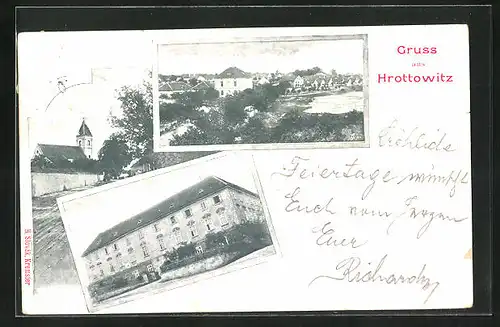 Gruss
aus
Hrottowitz
Fröhliche
Feiertage wünscht
Euch vom Herzen
Euer
Richard